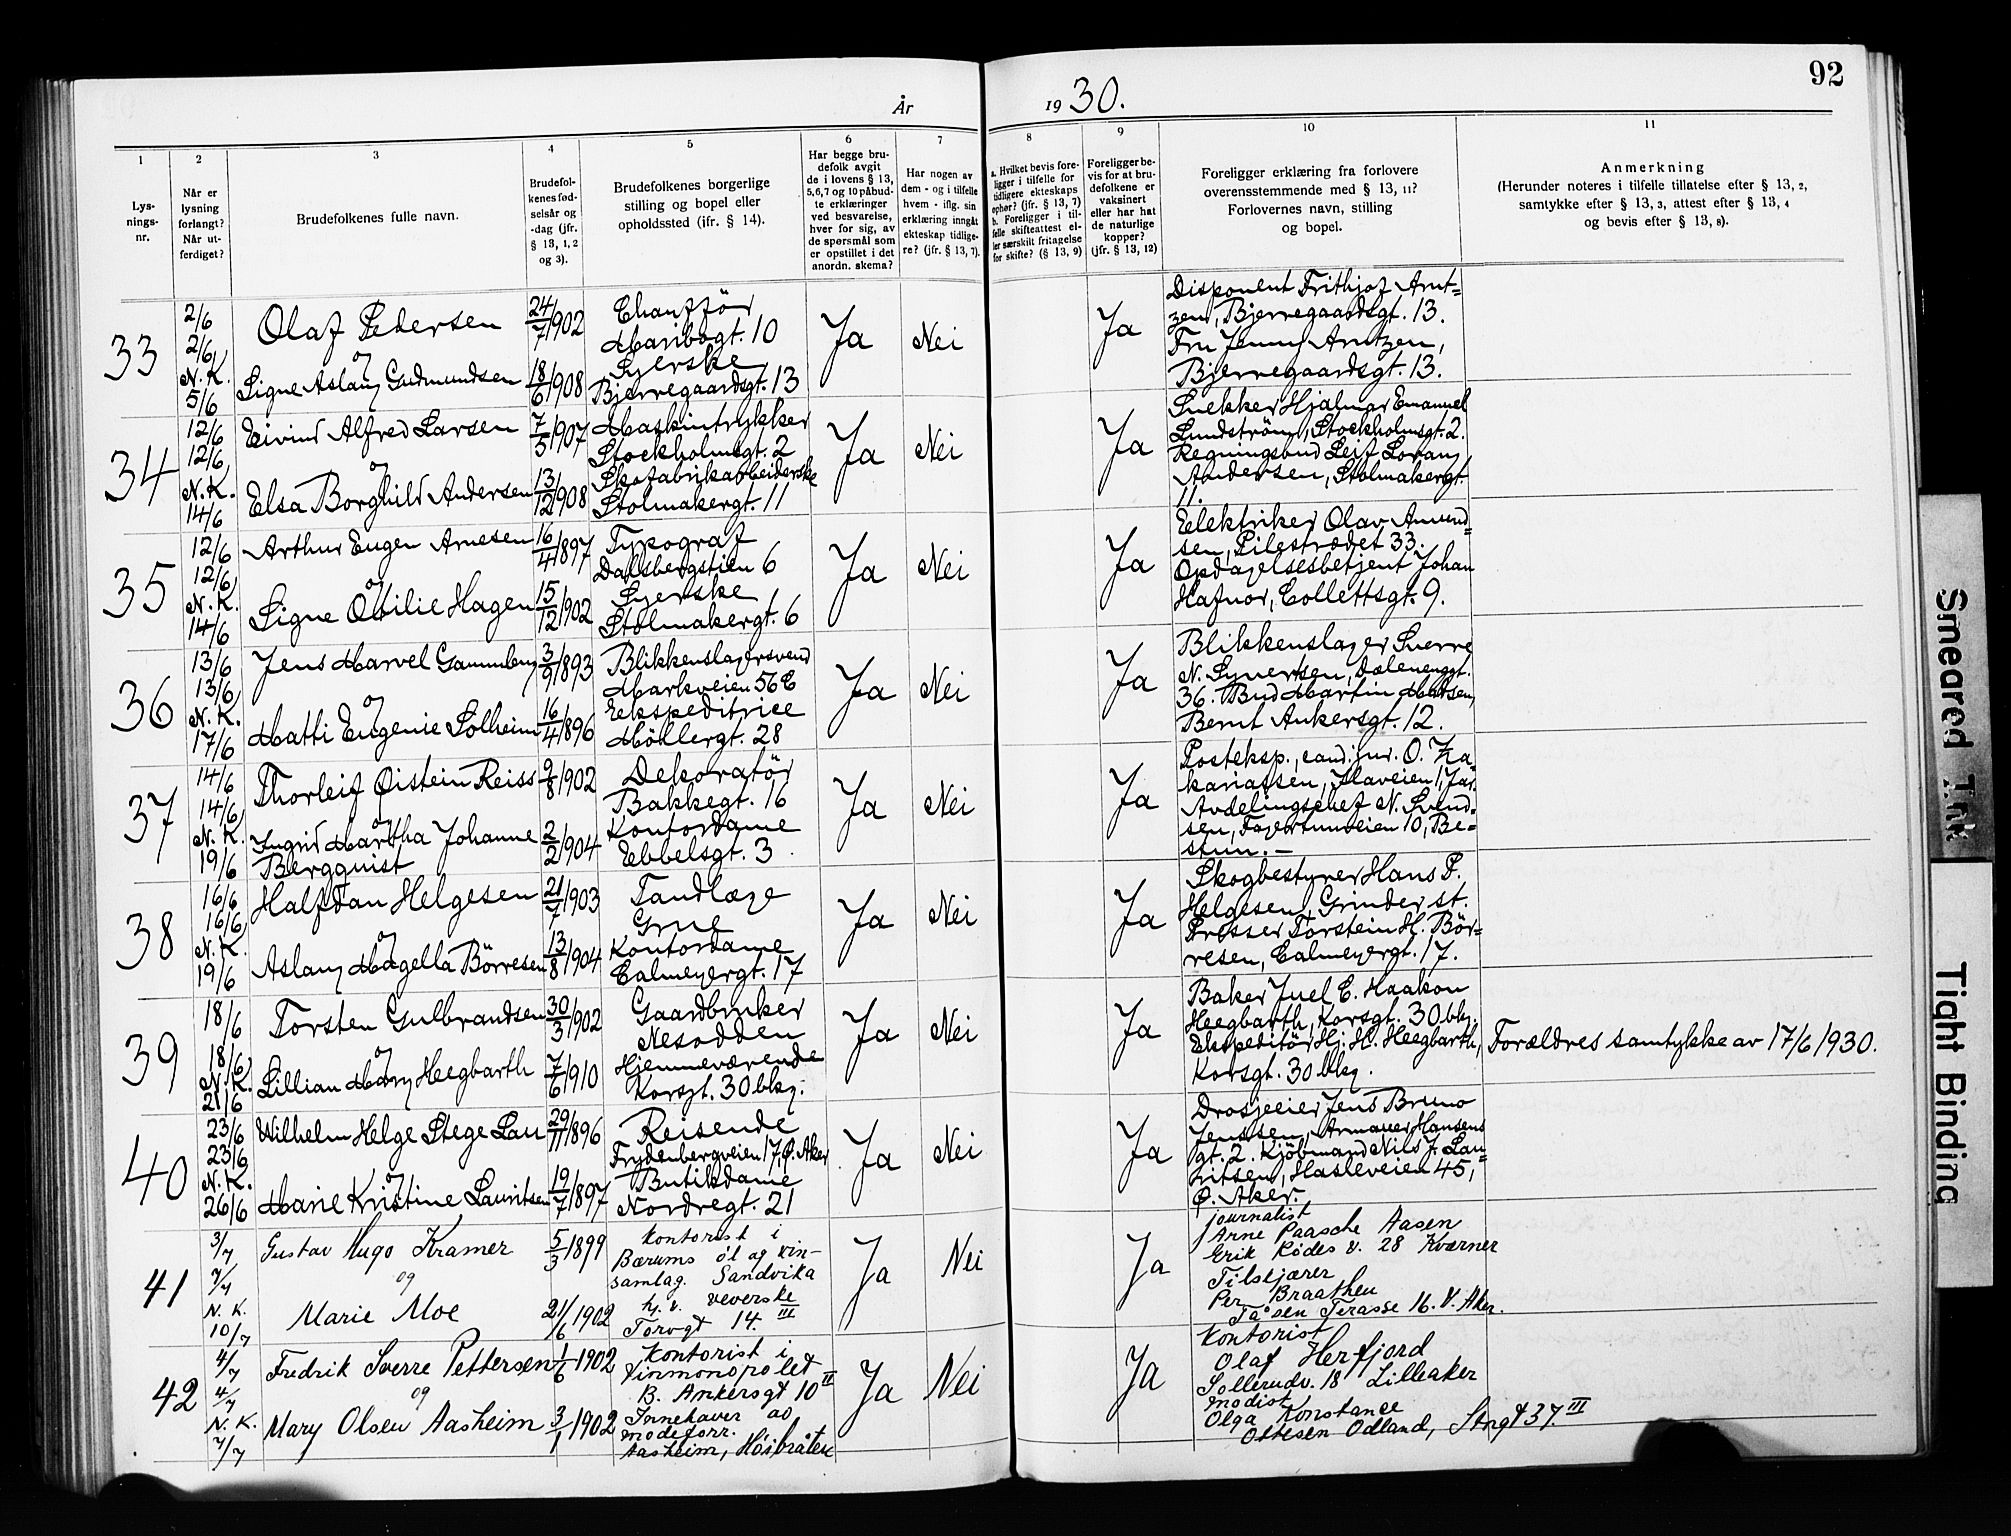 92
År 19 30.
1 2 3 4 5 6 7 8 9 10 11
Lys-
nings-
nr.
Når er
lysning
forlangt?
Når ut-
ferdiget?
Brudefolkenes fulle navn.
Brudefol-
kenes fød-
selsår og
-dag (jfr.
§ 13, 1, 2
og 3).
Brudefolkenes borgerlige
stilling og bopel eller
opholdssted (jfr. § 14).
Har begge bru-
defolk avgit
de i lovens § 13,
5,6,7 og 10 påbud-
te erklæringer
ved besvarelse,
hver for sig, av
de spørsmål som
er opstillet i det
anordn. skema?
Har nogen av
dem - og i tilfelle
hvem - iflg. sin
erklæring inngåt
ekteskap tidlige-
re? (jfr. § 13, 7).
a. Hvilket bevis fore-
ligger i tilfelle for
tidligere ekteskaps
ophør? (jfr. § 13, 7)
b. Foreligger i til-
felle skifteattest el-
ler særskilt fritagelse
for skifte? (§ 13, 9)
Foreligger be-
vis for at bru-
defolkene er
vaksinert
eller har hat
de naturlige
kopper?
(jfr. § 13, 12)
Foreligger erklæring fra forlovere
overensstemmende med § 13, 11?
Forlovernes navn, stilling
og bopel.
Anmerkning
(Herunder noteres i tilfelle tillatelse efter § 13, 2,
samtykke efter § 13, 3, attest efter § 13, 4
og bevis efter § 13, 8).
33
2/6
2/6
N.K.
5/6
Olaf Pedersen
og
Signe Aslaug Gudmundsen
24/7 1902
18/6 1908
Chaufför
Maribogt. 10
Syerske
Bjerregaardsgt. 13
Ja
Nei
Ja
Disponent Frithjof Arnt=
zen, Bjerregaardsgt. 13.
Fru Jenny Arntzen,
Bjerregaardsgt. 13.
34
12/6
12/6
N.K.
14/6
Eivind Alfred Larsen
og
Elsa Borghild Andersen
7/5 1907
13/12 1908
Maskintrykker
Stockholmsgt. 2
Skofabrikarbeiderske
Stolmakergt. 11
Ja
Nei
Ja
Snekker Hjalmar Emanuel
Lundström, Stockholmsgt. 2.
Regningsbud Leif Lorang
Andersen, Stolmakergt.
11.
35
12/6
12/6
N.K.
14/6
Arthur Eugen Arnesen
og
Signe Otilie Hagen
16/4 1897
15/12 1902
Typograf
Dalsbergstien 6
Syerske
Stolmakergt. 6
Ja
Nei
Ja
Elektriker Olav Amund=
sen, Pilestrædet 33.
Opdagelsesbetjent Johan
Hafnor, Collettsgt. 9.
36
13/6
13/6
N.K.
17/6
Jens Marvel Gammleng
og
Matti Eugenie Solheim
3/9 1893
16/4 1896
Blikkenslagersvend
Markveien 56 E
Ekspeditrice
Möllergt. 28
Ja
Nei
Ja
Blikkenslager Sverre
N. Syvertsen, Dælenenggt.
36. Bud Martin Madsen,
Bernt Ankersgt. 12.
37
14/6
14/6
N.K.
19/6
Thorleif Øistein Reiss
og
Ingrid Martha Johanne
Bergquist
9/8 1902
2/2 1904
Dekoratör
Bakkegt. 16
Kontordame
Ebbelsgt. 3
Ja
Nei
Ja
Posteksp., cand. jur. O. Za-
kariassen, Ilaveien 1, Jar.
Avdelingschef N. Svend-
sen, Fagertunveien 10, Be-
stun.-
38
16/6
16/6
N.K.
19/6
Halfdan Helgesen
og
Aslaug Magella Börresen
21/7 1903
13/8 1904
Tandlæge
Grue
Kontordame
Calmeyergt. 17
Ja
Nei
Ja
Skogbestyrer Hans P.
Helgesen, Grinder st.
Presser Torstein H. Bör-
resen, Calmeyergt. 17.
39
18/6
18/6
N.K.
21/6
Torsten Gulbrandsen
og
Lillian Mary Heegbarth
30/3 1902
7/6 1910
Gaardbruker
Nesodden
Hjemmeværende
Korsgt. 30 bkg.
Ja
Nei
Ja
Baker Juel E. Haakon
Heegbarth, Korsgt. 30 bkg.
Ekspeditör Hj. H. Heegbarth,
Korsgt. 30 bkg.
Forældres samtykke av 17/6 1930.
40
23/6
23/6
N.K.
26/6
Wilhelm Helge Stege Lau
og
Marie Kristine Lauritsen
29/11 1896
19/7 1897
Reisende
Frydenbergveien 17, Ø. Aker
Butikdame
Nordregt. 21
Ja
Nei
Ja
Drosjeeier Jens Bruno
Jenssen, Armauer Hansens
gt. 2. Kjöbmand Nils J. Lau-
ritsen, Hasleveien 45,
Ø. Aker.
41
3/7
7/7
N.K.
10/7
Gustav Hugo Kramer
og
Marie Moe
5/3 1899
21/6 1902
kontorist i
Bærums öl og vin-
samlag. Sandvika
hj. v. veverske
Torvgt 14. III
Ja
Nei
Ja
journalist
Arne Paasche Aasen
Erik Rödes v. 28 Kværner
Tilskjærer
Per Braathen
Tåsen Terasse 16. V. Aker.
42
4/7
4/7
N.K.
7/7
Fredrik Sverre Pettersen
og
Mary Olsen Aasheim
1/6 1902
3/1 1902
Kontorist i
Vinmonopolet
B. Ankersgt 10 II
Innehaver av
modeforr.
Aasheim, Höibråten
Ja
Nei
Ja
Kontorist
Olaf Herfjord
Sollerudv. 18 Lilleaker
modist
Olga Konstance
Ottesen Odland, Strgt 37 III
Smeared Ink
Tight Binding